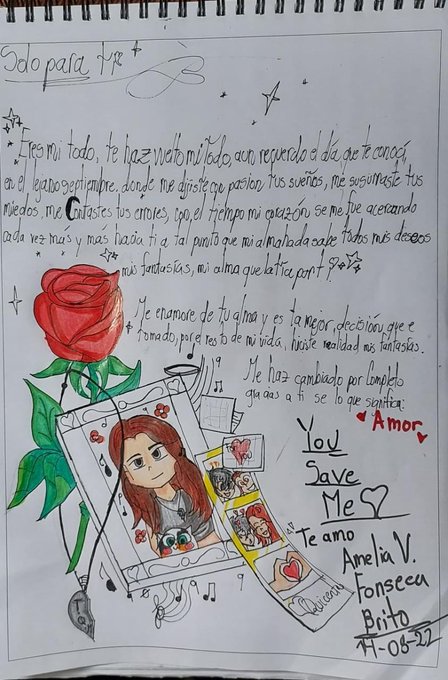 Solo para ti
Eres mi todo, te haz vuelto mi todo, aun recuerdo el día que te conocí,
en el lejano septiembre. donde me dijiste con pasion tus sueños, me susurraste tus
miedos, me Contastes tus errores, con el tiempo mi corazón se me fue acercando
cada vez más y más hacia ti a tal punto que mi almohada sabe todos mis deseos
mis fantasías, mi alma que latía por ti
Me enamore de tu alma y es la mejor decisión que e
tomado, por el resto de mi vida, hiciste realidad mis fantasías.
Me haz cambiado por Completo
gracias a ti se lo que significa:
Amor
You
Save
Me
Te amo
Amelia V.
Fonseca
Brito